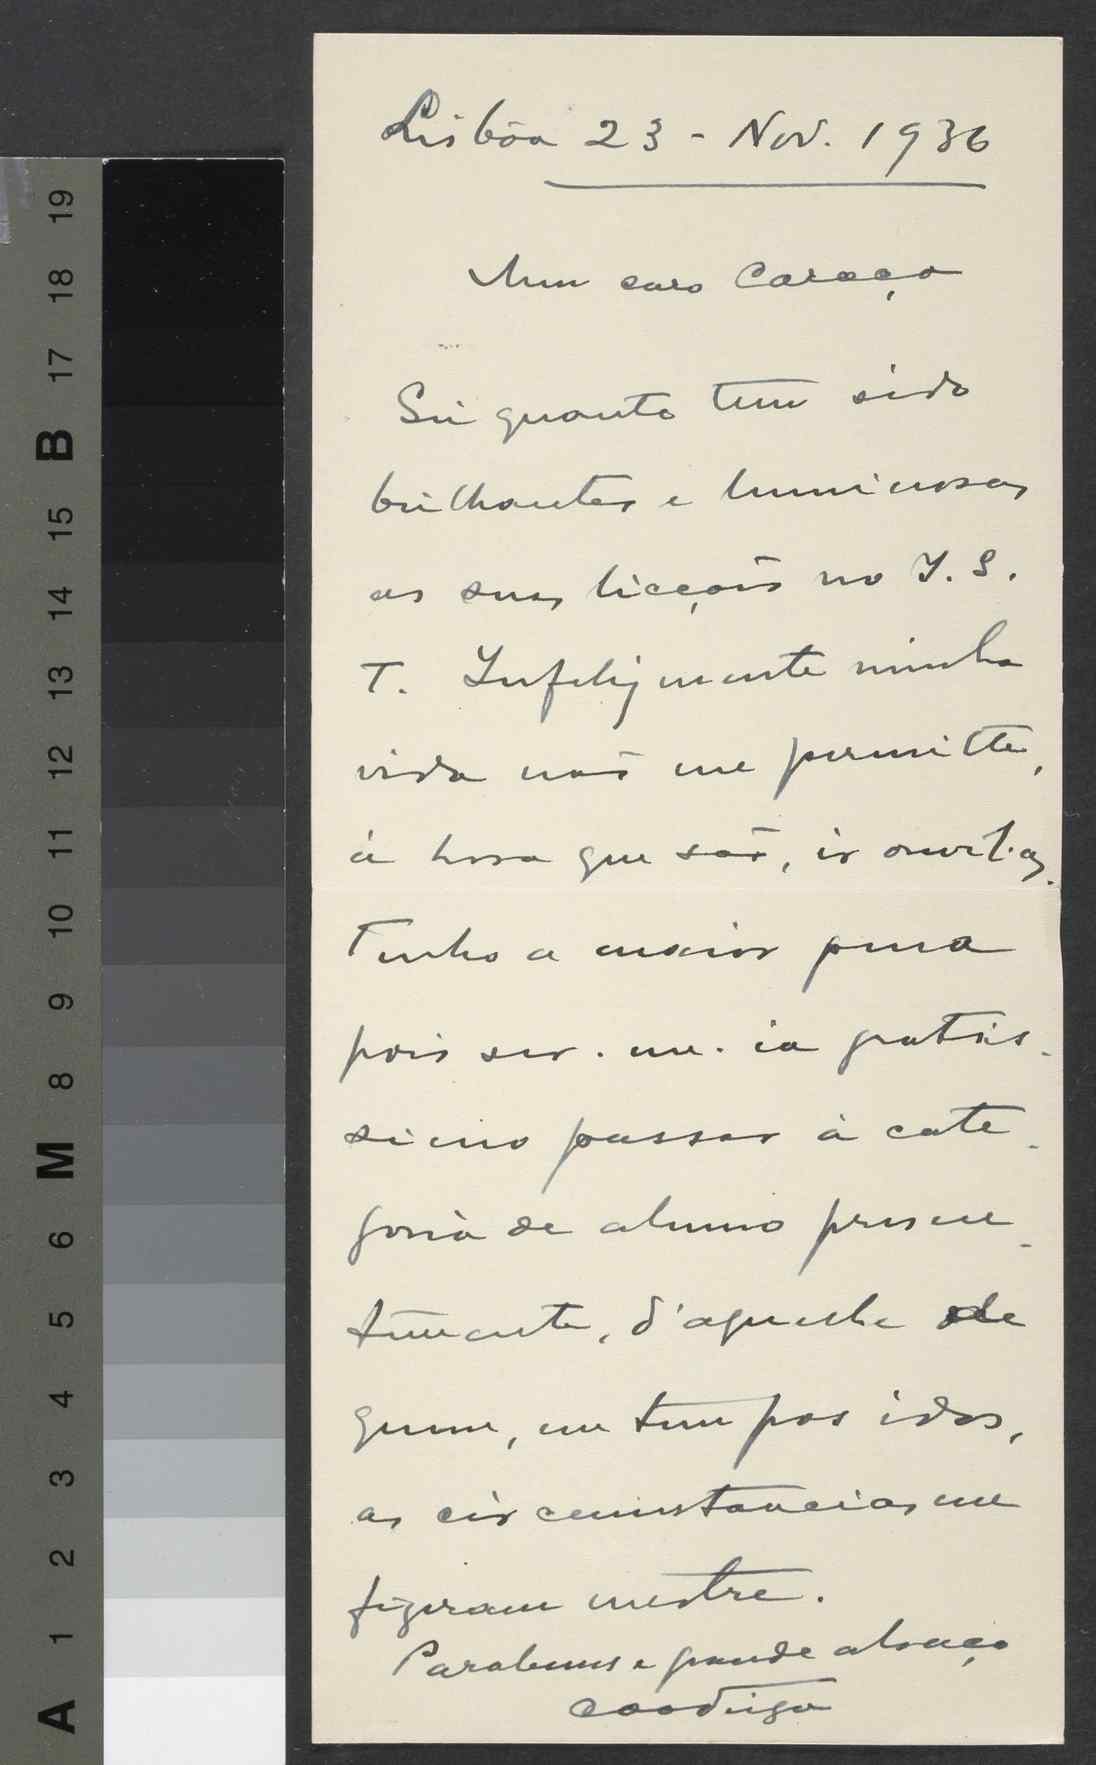 19
18
17
B
15
14
13
12
11
10
9
8
M
6
5
4
3
2
1
A
Lisbôa 23 - Nov. 1936
Meu caro Caraça
Sei quanto tem sido
brilhantes e luminosas
as suas licções no I. S.
T. Infelizmente minha
vida não me permitte,
á hora que são, ir ouvil-as.
Tenho a maior pena
pois ser-me-ia gratis-
simo passar á cate-
goria de alumno, presen-
temente, d'aquelle de
quem, em tempos idos,
as circumstancias me
fizeram mestre.
Parabens e grande abraço